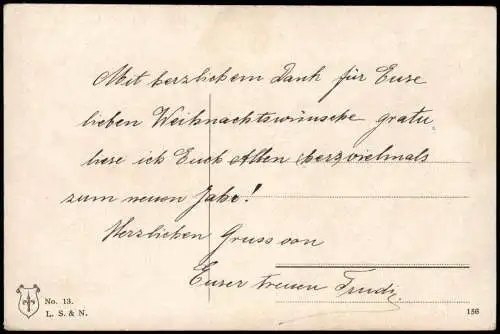 Mit herzlichem Dank für Eure
lieben Weihnachtswünsche gratu-
liere ich Euch Allen herzvielmals
zum neuen Jahr!
Herzlichen Gruss von
Eurer treuen Trudi.
No. 13.
L. S. & N.
156